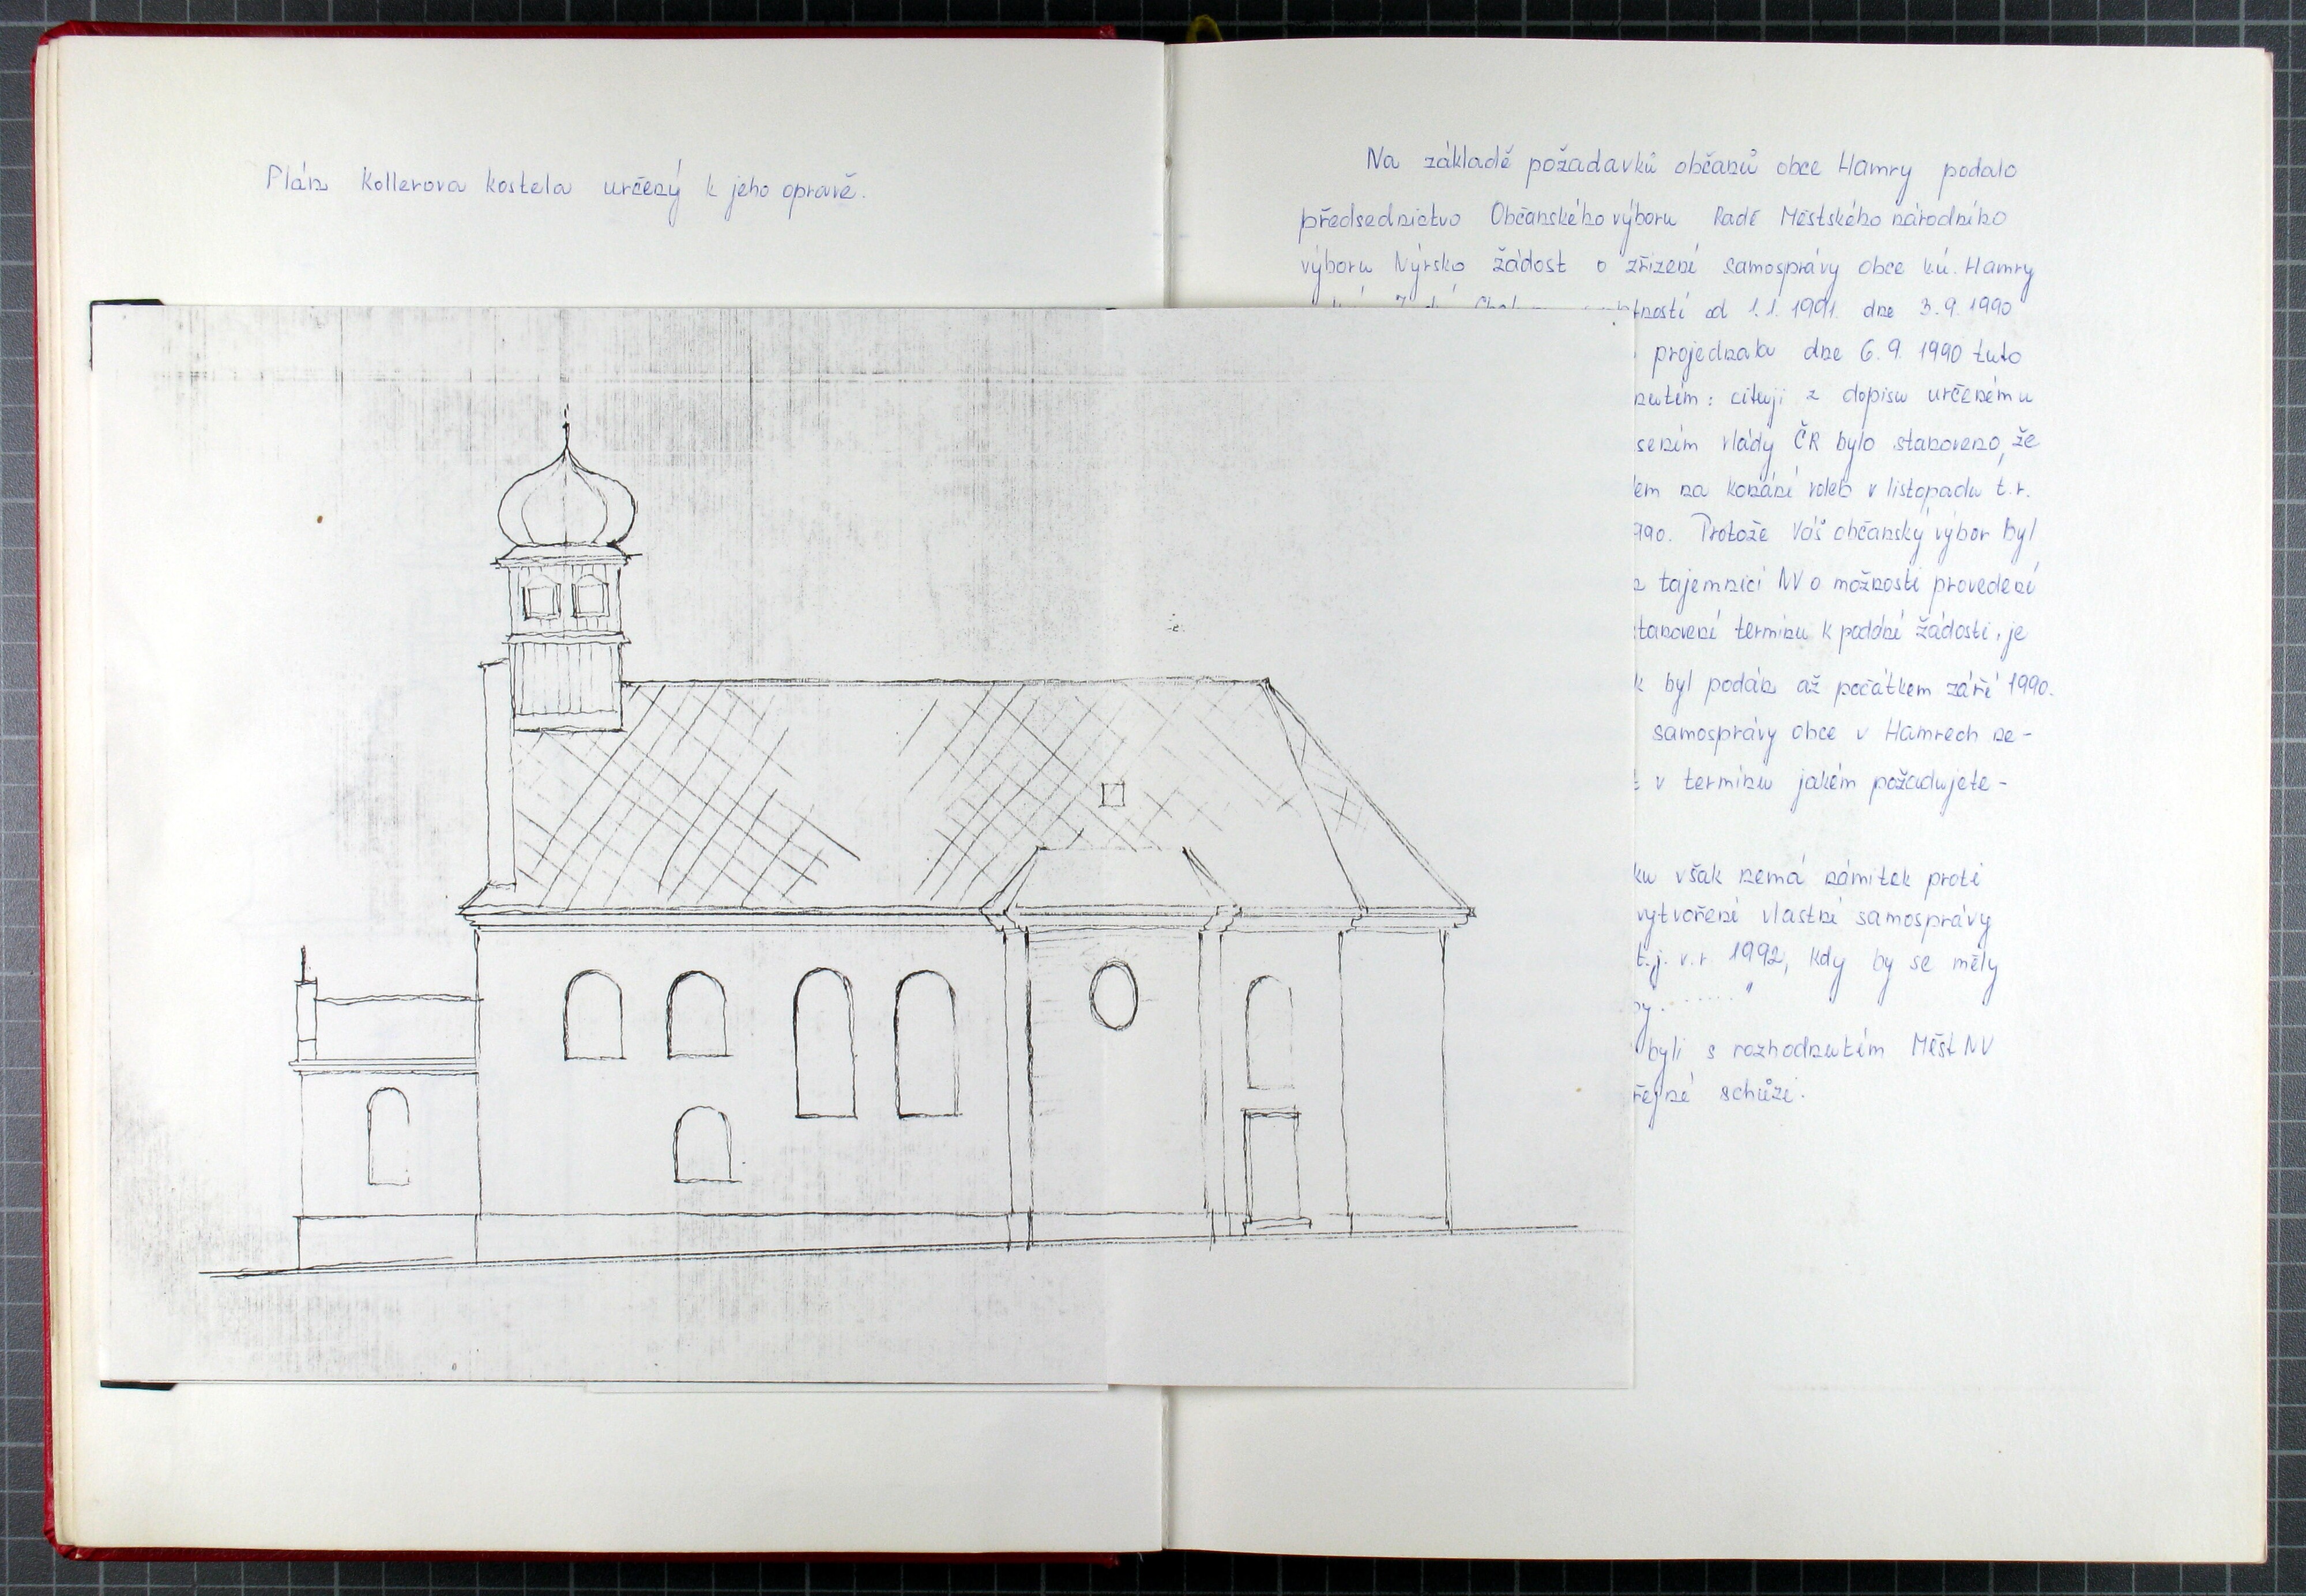 Plán Kollerova kostela určený k jeho opravě.
Na základě požadavků občanů obce Hamry podalo
předsednictvo Občanského výboru Radě Městského národního
výboru Nýrsko žádost o zřízení samosprávy obce k.ú. Hamry
od 1.1.1991. dne 3.9.1990
projednala dne 6.9.1990 tuto
nutím: cituji z dopisu určenému
sením vlády ČR bylo stanoveno, že
em na konání voleb v listopadu t.r.
990. Protože Váš občanský výbor byl
tajemnicí NV o možnosti provedení
tanovení termínu k podání žádosti, je
k byl podán až počátkem září 1990.
samosprávy obce v Hamrech ne-
v termínu jakém požadujete-
ku však nemá námitek proti
vytvoření vlastní samosprávy
t.j. v.r 1992, kdy by se měly
by. ......."
byli s rozhodnutím Měst NV
řejné schůzi.